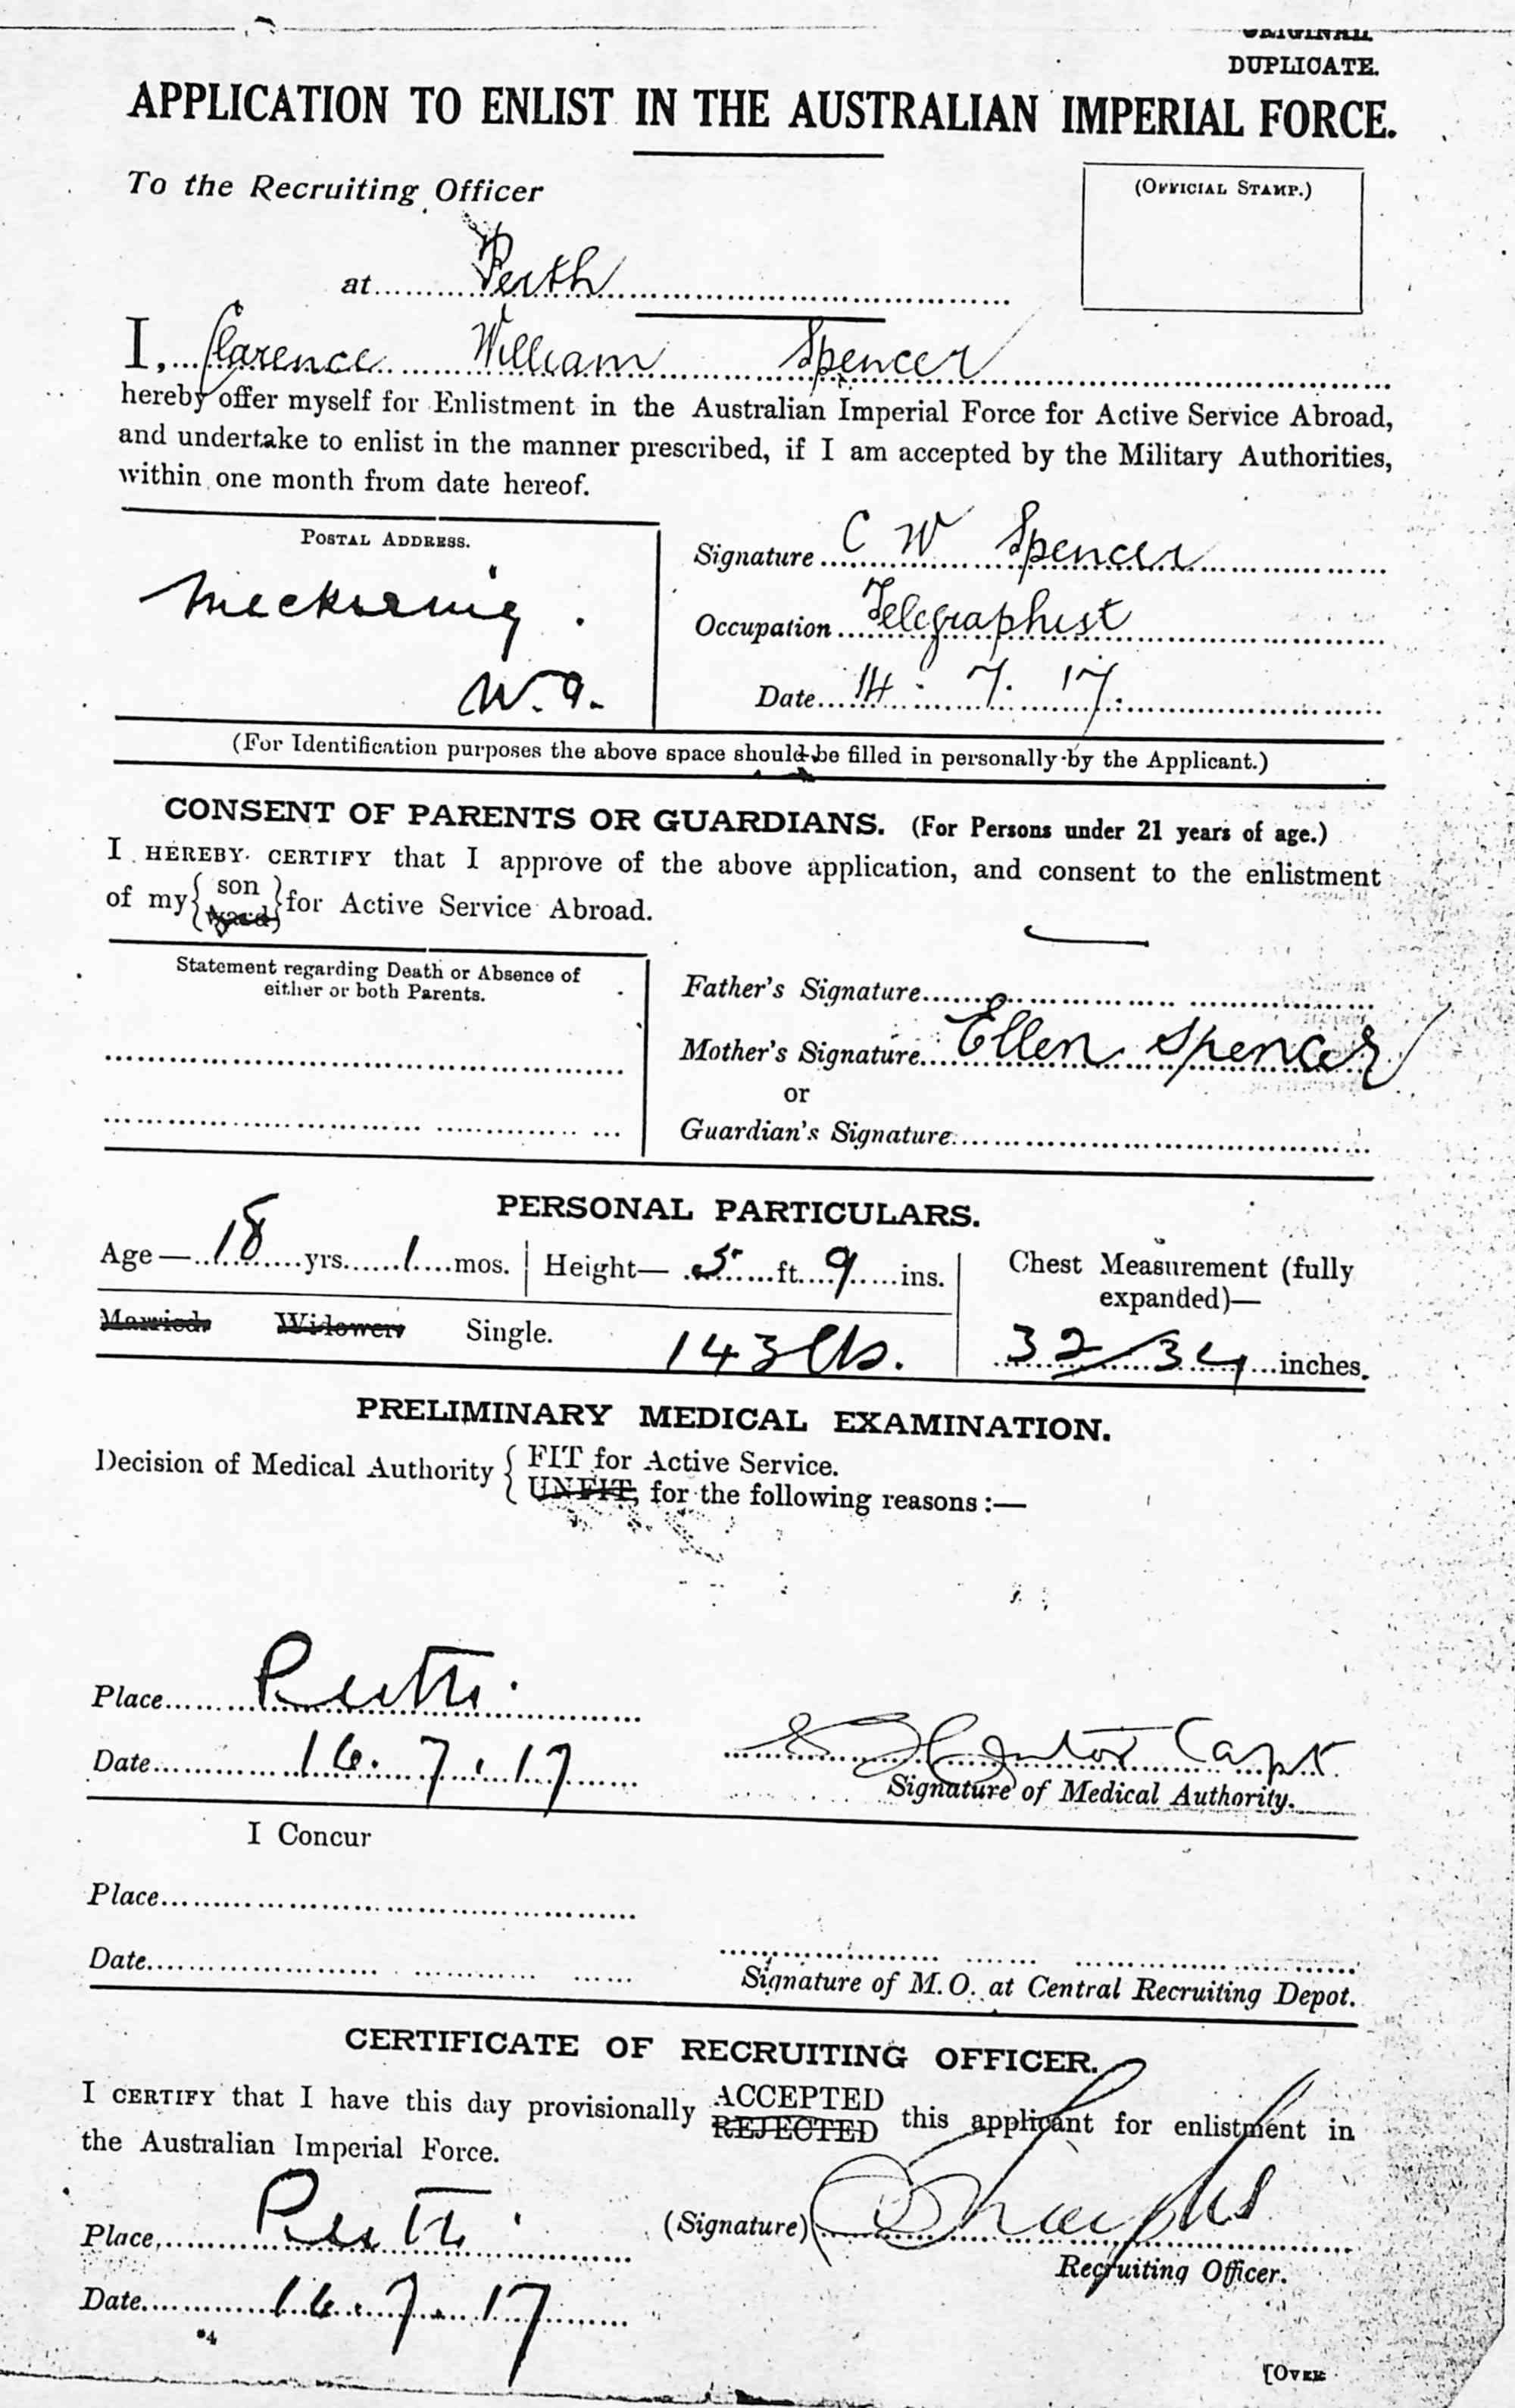 ORIGINAL.
DUPLICATE.
APPLICATION TO ENLIST IN THE AUSTRALIAN IMPERIAL FORCE.
To the Recruiting Officer
(OFFICIAL STAMP.)
at Perth
I, Clarence William Spencer
hereby offer myself for Enlistment in the Australian Imperial Force for Active Service Abroad,
and undertake to enlist in the manner prescribed, if I am accepted by the Military Authorities,
within one month from date hereof.
POSTAL ADDRESS.
Meckering.
W.A.
Signature C W Spencer
Occupation Telegraphist
Date 14. 7. 17.
(For Identification purposes the above space should be filled in personally by the Applicant.)
CONSENT OF PARENTS OR GUARDIANS. (For Persons under 21 years of age.)
I HEREBY CERTIFY that I approve of the above application, and consent to the enlistment
of my { son
ward } for Active Service Abroad.
Statement regarding Death or Absence of
either or both Parents.
Father's Signature
Mother's Signature Ellen Spencer
or
Guardian's Signature
PERSONAL PARTICULARS.
Age — 18 yrs. 1 mos. Height — 5 ft. 9 ins.
Chest Measurement (fully
expanded)—
Married. Widower. Single.
143 lbs.
32/34 inches.
PRELIMINARY MEDICAL EXAMINATION.
Decision of Medical Authority { FIT for Active Service.
UNFIT, for the following reasons :—
Place Perth.
Date 16. 7. 17
Capt.
Signature of Medical Authority.
I Concur
Place
Date
Signature of M.O. at Central Recruiting Depot.
CERTIFICATE OF RECRUITING OFFICER.
I CERTIFY that I have this day provisionally ACCEPTED
REJECTED this applicant for enlistment in
the Australian Imperial Force.
Place Perth.
(Signature)
Recruiting Officer.
Date 16. 7. 17
*4
[OVER